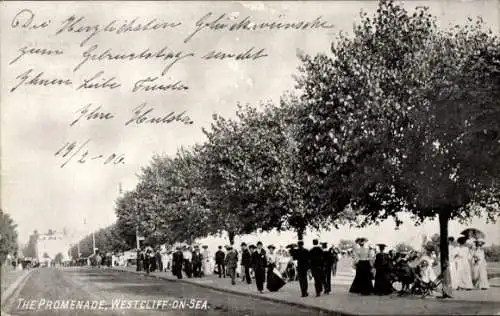 Die Herzlichsten Glückwünsche
zum Geburtstag sendet
Ihnen Liebe
Ihre
19/2 - 06
THE PROMENADE, WESTCLIFF-ON-SEA.